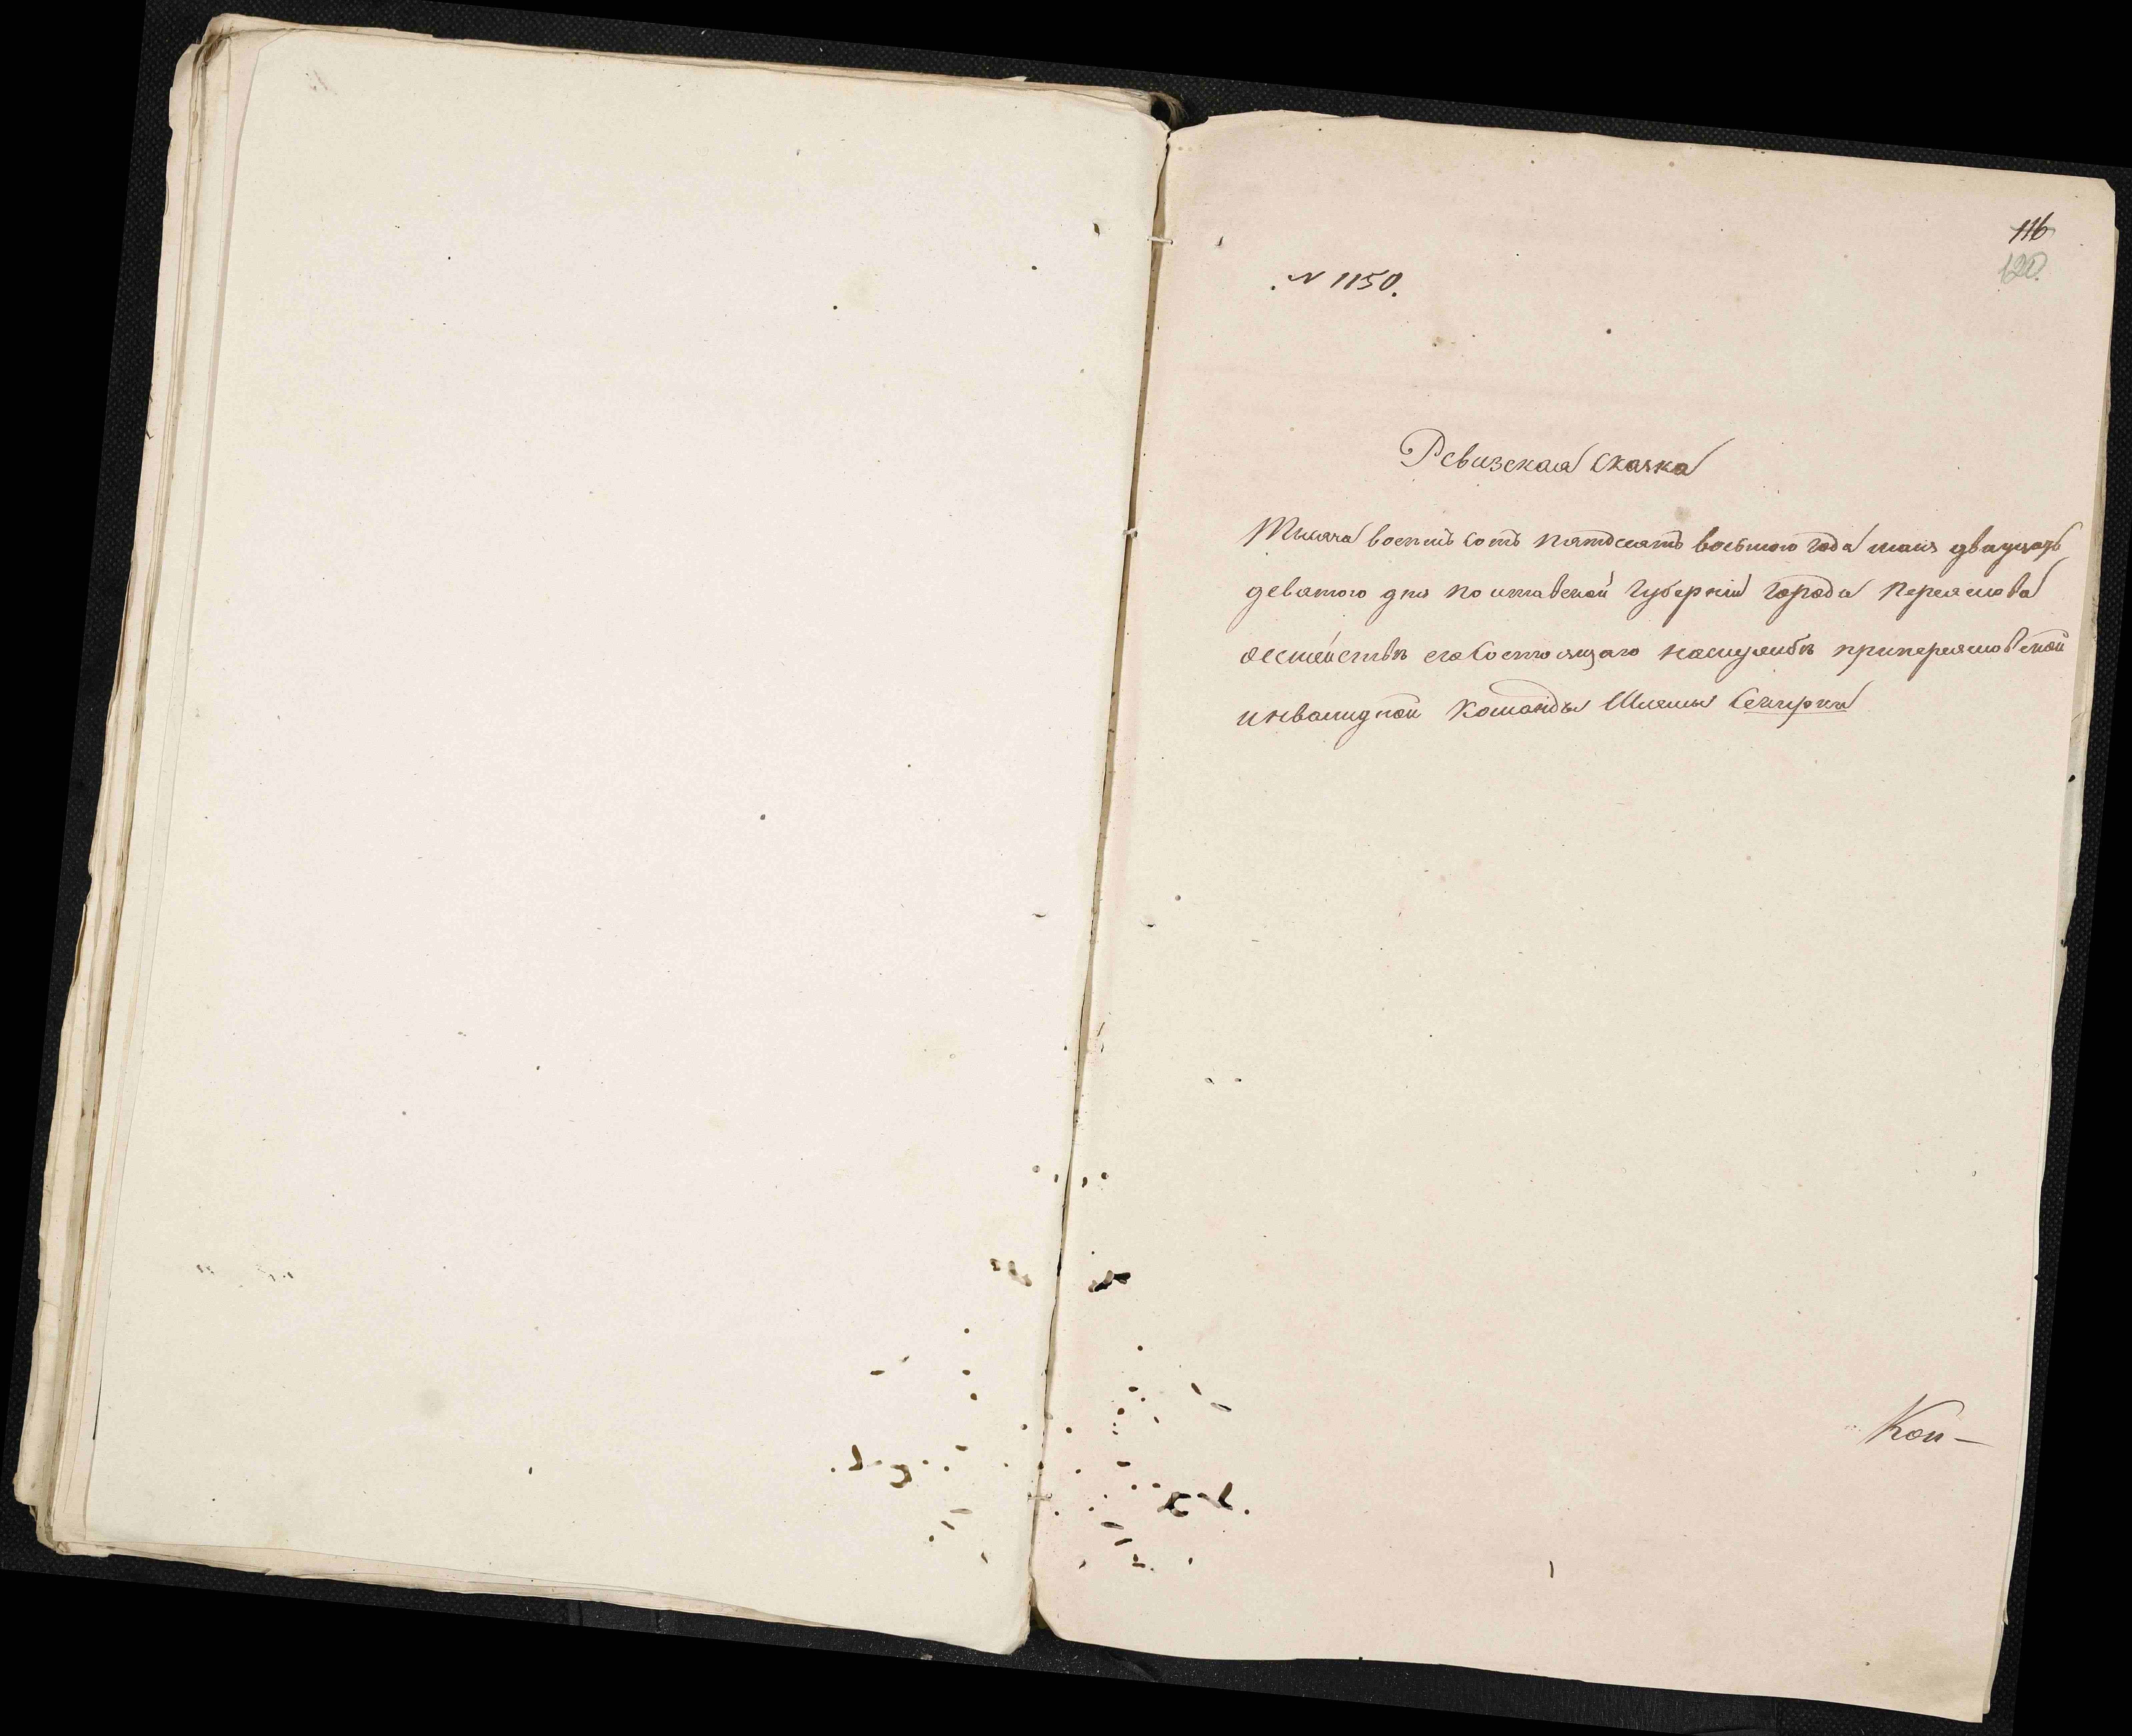 116
120.
N 1150.
Ревизская сказка
Тысяча восемь сотъ пятдесятъ восьмого года мая двадцать
девятого дня полтавской губерніи города Переяслова
осемействѣ его состоящаго наслужбѣ припереясловской
инвалидной команды Шлемы
Коп-